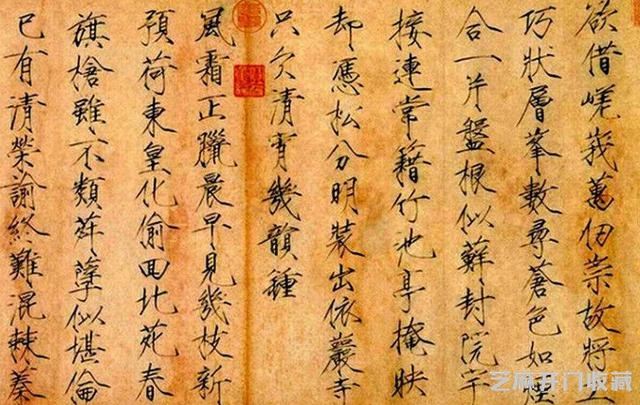 欲借嵯峨萬仞崇故將工
巧狀層峯數尋蒼色如煙
合一片盤根似蘚封院宇
接連常籍竹池亭掩映
却憑松分明裝出依巖寺
只欠清宵幾韻鍾
風霜正臘晨早見幾枝新
預荷東皇化偷囬北苑春
旗槍雖不類荈孽似堪倫
已有清榮諭終難混棘蓁
芝麻开门收藏